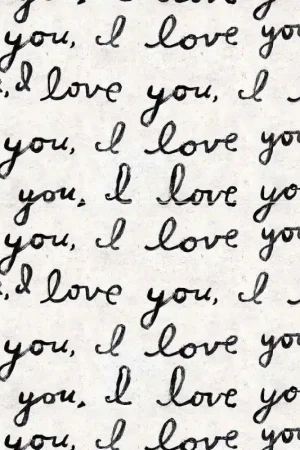 you, I love
you, I love you
, I love you, I
you, I love you
you, I love yo
you, I love you
, I love you, I
you, I love you
you, I love yo
you, I love you